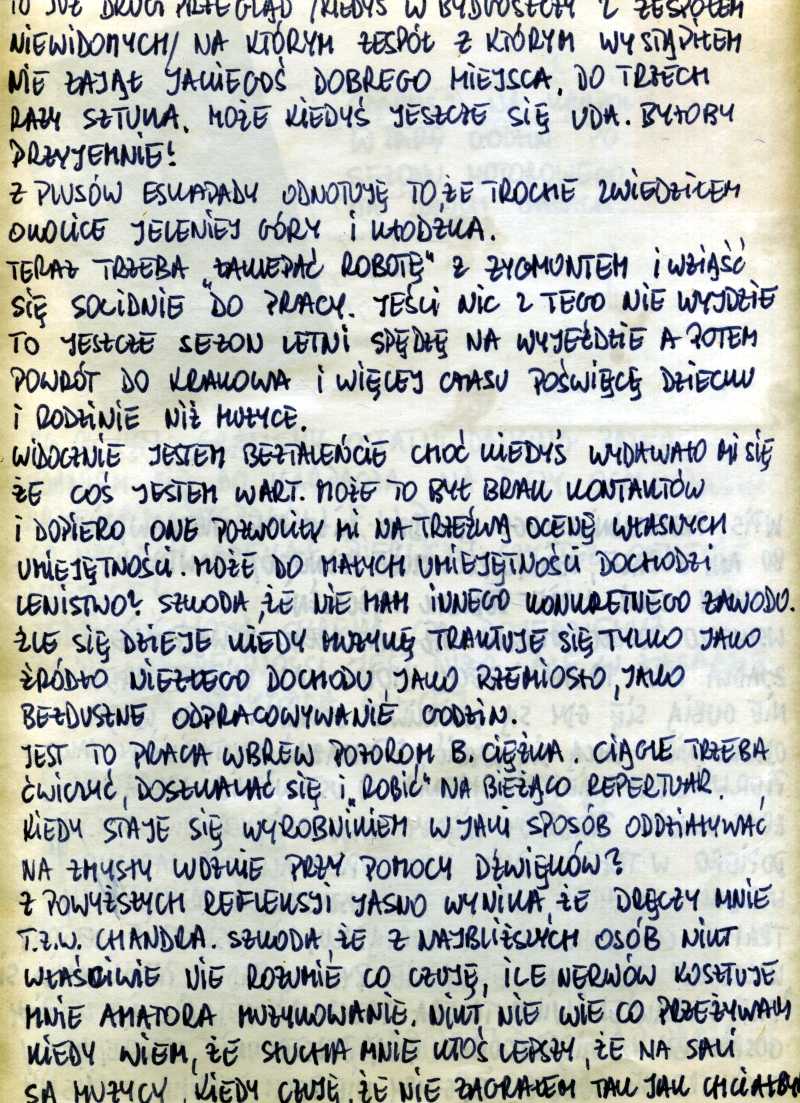 TO JUŻ DRUGI PRZEGLĄD /KIEDYŚ W BYDGOSZCZY Z ZESPOŁEM
NIEWIDOMYCH/ NA KTÓRYM ZESPÓŁ Z KTÓRYM WYSTĄPIŁEM
NIE ZAJĄŁ JAKIEGOŚ DOBREGO MIEJSCA. DO TRZECH
RAZY SZTUKA. MOŻE KIEDYŚ JESZCZE SIĘ UDA. BYŁOBY
PRZYJEMNIE!
Z PLUSÓW ESKAPADY ODNOTUJĘ TO, ŻE TROCHE ZWIEDZIŁEM
OKOLICE JELENIEJ GÓRY I KŁODZKA.
TERAZ TRZEBA „ZAKLEPAĆ ROBOTĘ" Z ZYGMUNTEM I WZIĄŚĆ
SIĘ SOLIDNIE DO PRACY. JEŚLI NIC Z TEGO NIE WYJDZIE
TO JESZCZE SEZON LETNI SPĘDZĘ NA WYJEŹDZIE A POTEM
POWRÓT DO KRAKOWA I WIĘCEJ CZASU POŚWIĘCĘ DZIECKU
I RODZINIE NIŻ MUZYCE.
WIDOCZNIE JESTEM BEZTALEŃCIE CHOĆ KIEDYŚ WYDAWAŁO MI SIĘ
ŻE COŚ JESTEM WART. MOŻE TO BYŁ BRAK KONTAKTÓW
I DOPIERO ONE POZWOLIŁY MI NA TRZEŹWĄ OCENĘ WŁASNYCH
UMIEJĘTNOŚCI. MOŻE DO MAŁYCH UMIEJĘTNOŚCI DOCHODZI
LENISTWO? SZKODA, ŻE NIE MAM INNEGO KONKRETNEGO ZAWODU.
ŹLE SIĘ DZIEJE KIEDY MUZYKĘ TRAKTUJE SIĘ TYLKO JAKO
ŹRÓDŁO NIEZŁEGO DOCHODU, JAKO RZEMIOSŁO, JAKO
BEZDUSZNE ODPRACOWYWANIE GODZIN.
JEST TO PRACA WBREW POZOROM B. CIĘŻKA. CIĄGLE TRZEBA
ĆWICZYĆ, DOSZKALAĆ SIĘ I „ROBIĆ" NA BIEŻĄCO REPERTUAR.
KIEDY STAJE SIĘ WYROBNIKIEM W JAKI SPOSÓB ODDZIAŁYWAĆ
NA ZMYSŁY LUDZKIE PRZY POMOCY DŹWIĘKÓW?
Z POWYŻSZYCH REFLEKSJI JASNO WYNIKA, ŻE DRĘCZY MNIE
T.Z.W. CHANDRA. SZKODA, ŻE Z NAJBLIŻSZYCH OSÓB NIKT
WŁAŚCIWIE NIE ROZUMIE CO CZUJĘ, ILE NERWÓW KOSZTUJE
MNIE AMATORA MUZYKOWANIE. NIKT NIE WIE CO PRZEŻYWAM
KIEDY WIEM, ŻE SŁUCHA MNIE KTOŚ LEPSZY, ŻE NA SALI
SĄ MUZYCY, KIEDY CZUJĘ, ŻE NIE ZAGRAŁEM TAK JAK CHCIAŁBYM